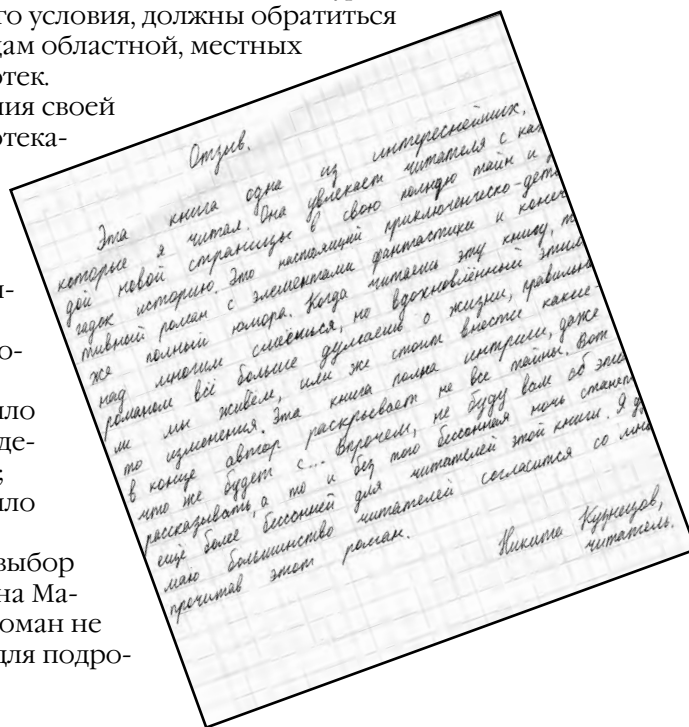 го условия, должны обратиться
дам областной, местных
отек.
ния своей
отека-
о-
ло
де-
;
ло
выбор
на Ма-
оман не
для подро-
Отзыв.
Эта книга одна из интереснейших,
которые я читал. Она увлекает читателя с каж
дой новой страницы в свою полную тайн и
гадок историю. Это настоящий приключенческо-дете
тивный роман с элементами фантастики и конеч
же полный юмора. Когда читаешь эту книгу, то
над многим смеёшься, но вдохновлённый этим
романом всё больше думаешь о жизни, правильно
ли мы живём, или же стоит внести какие-
то изменения. Эта книга полна интриги, даже
в конце автор раскрывает не все тайны. Вот
что же будет с... Впрочем, не буду вам об этом
рассказывать, а то и без того бессонная ночь станет
ещё более бессонней для читателей этой книги. Я ду
маю большинство читателей согласится со мно
прочитав этот роман.
Никита Кузнецов,
читатель.